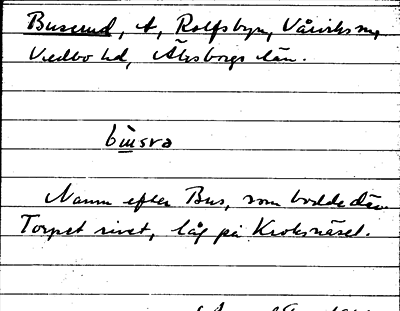 Buserud, t, Rolfsbyn, Vårviks sn,
Vedbo hd, Älvsborgs län.
bu̲sra
Namn efter Bus, som bodde där.
Torpet rivet, låg på Kroksnäset.